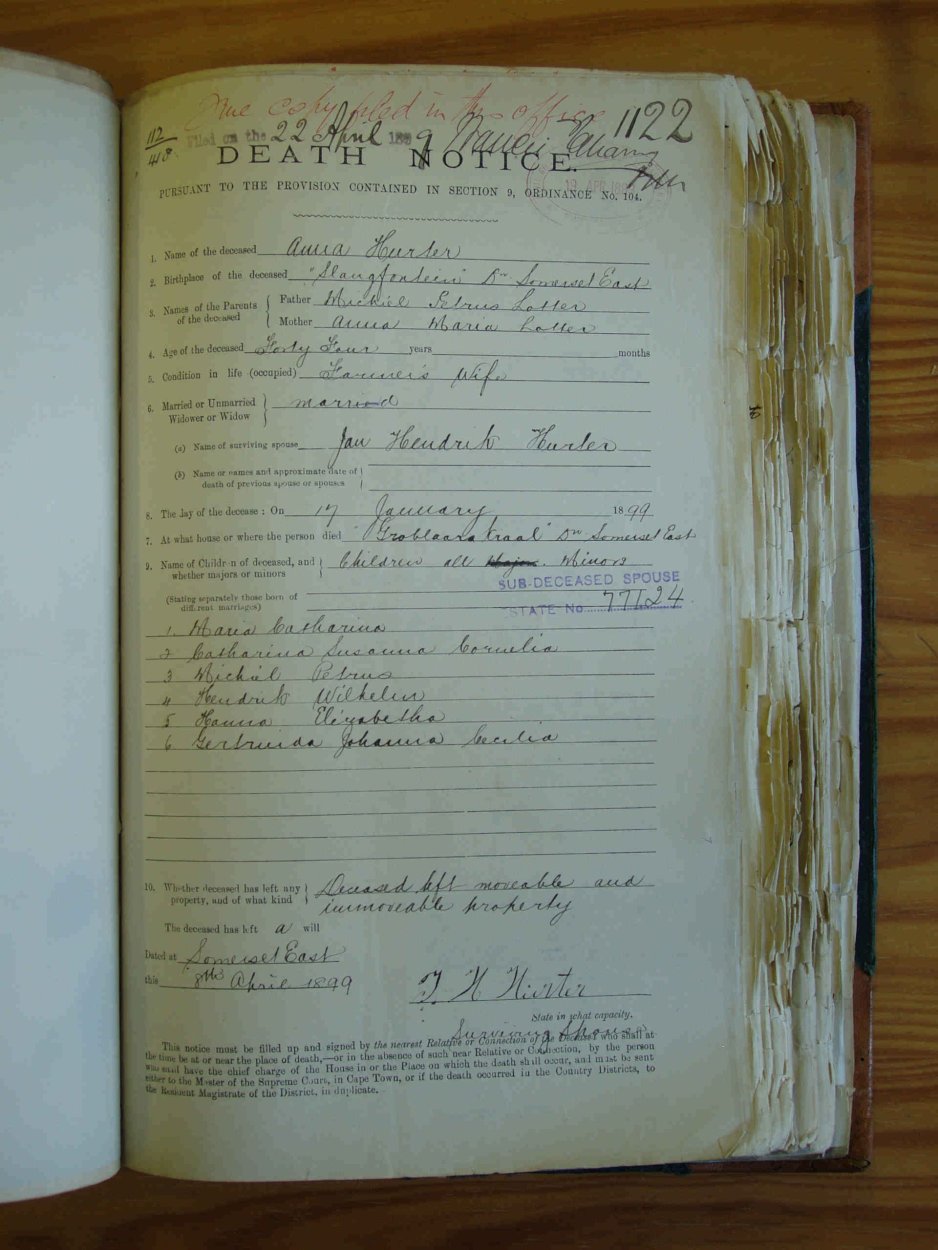 True copy filed in this office
112/418 Filed on the 22 April 1899 1122
DEATH NOTICE.
19 APR
PURSUANT TO THE PROVISION CONTAINED IN SECTION 9, ORDINANCE No. 104.
1. Name of the deceased Anna Hurter
2. Birthplace of the deceased "Slangfontein" Dn Somerset East
3. Names of the Parents of the deceased { Father Michiel Petrus Lotter
Mother Anna Maria Lotter
4. Age of the deceased Forty Four years months
5. Condition in life (occupied) Farmer's Wife
6. Married or Unmarried Widower or Widow } married
(a) Name of surviving spouse Jan Hendrik Hurter
(b) Name or names and approximate date of death of previous spouse or spouses
8. The day of the decease: On 17 January 1899
7. At what house or where the person died "Groblaarskraal" Dn Somerset East
9. Name of Children of deceased, and whether majors or minors } Children all Majors. Minors
SUB-DECEASED SPOUSE
(Stating separately those born of different marriages)
ESTATE No.
1. Maria Catharina
2 Catharina Susanna Cornelia
3 Michiel Petrus
4 Hendrik Wilhelm
5 Hanna Elizabetha
6 Gertruida Johanna Cecilia
10. Whether deceased has left any property, and of what kind } Deceased left moveable and
immoveable property
The deceased has left a will
Dated at Somerset East
this 8th April 1899
J H Hurter
State in what capacity.
Surviving Spouse
This notice must be filled up and signed by the nearest Relative or Connection of the Deceased who shall at
the time be at or near the place of death,—or in the absence of such near Relative or Connection, by the person
who shall have the chief charge of the House in or the Place on which the death shall occur, and must be sent
either to the Master of the Supreme Court, in Cape Town, or if the death occurred in the Country Districts, to
the Resident Magistrate of the District, in duplicate.